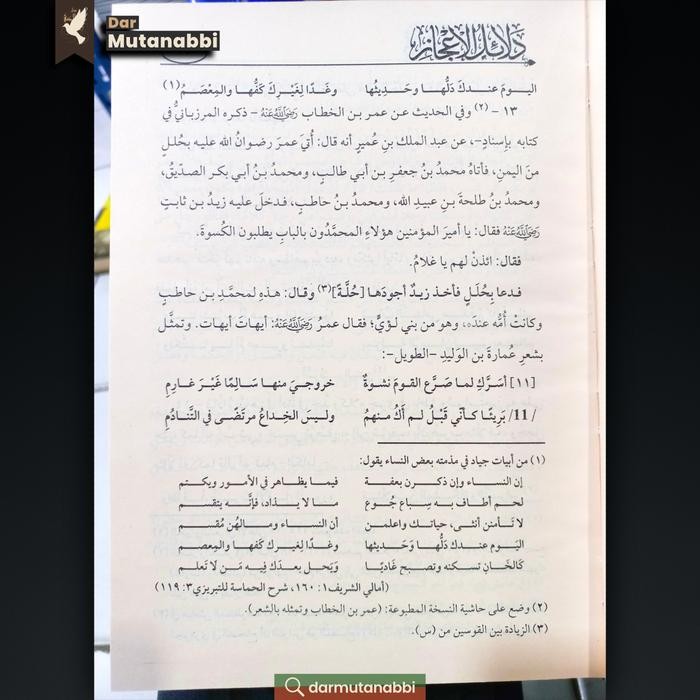 Dar
Mutanabbi
دلائل الإعجاز
اليومَ عندكَ دَلُّها وحَديثُها وغَدًا لِغَيرِكَ كَفُّها والمِعْصَمُ(١)
١٣ - (٢) وفي الحديث عن عمر بن الخطاب رَضِيَ اللَّهُ عَنْهُ - ذكره المرزبانيُّ في
كتابه بإسنادٍ-، عن عبد الملك بنِ عُميرٍ أنه قال: أُتيَ عمرَ رضوانُ الله عليه بحُللٍ
منَ اليمنِ، فأتاهُ محمدُ بنُ جعفرِ بن أبي طالبٍ، ومحمدُ بنُ أبي بكر الصدّيقُ،
ومحمدُ بنُ طلحةَ بنِ عبيدِ الله، ومحمدُ بنُ حاطبٍ، فدخلَ عليه زيدُ بن ثابتٍ
رَضِيَ اللَّهُ عَنْهُ فقال: يا أميرَ المؤمنين هؤلاءِ المحمَّدُون بالبابِ يطلبون الكُسوةَ.
فقال: ائذنْ لهم يا غلامُ.
فدعا بِحُلَلٍ فأخذ زيدٌ أجودَها [حُلَّةً](٣) وقال: هذهِ لمحمَّدِ بن حاطبٍ
وكانتْ أُمُّه عندَه، وهو من بني لؤيٍّ؛ فقال عمرُ رَضِيَ اللَّهُ عَنْهُ: أيهاتَ أيهات. وتمثَّل
بشعرِ عُمارةَ بن الوَليدِ -الطويل-:
[١١] أسَرَّكِ لما صَرَّع القومَ نشوةٌ خروجيَ منها سَالِمًا غَيْرَ غارِمِ
/11/ بَرِيئًا كأنّي قَبْلُ لم أكُ منهمُ وليسَ الخِداعُ مرتَضًى في التَّنادُمِ
(١) من أبيات جياد في مذمته بعض النساء يقول:
إن النساء وإن ذكرن بعفة فيما يظاهر في الأمور ويكتم
لحم أطاف به سِباع جُوع ما لا يذاد، فإنَّه يتقسم
لا تأمنن أنثى، حياتك واعلمن أن النساء ومالهُن مُقسم
اليَوم عندك دَلُّها وَحَديثها وغَدًا لِغيرك كَفها والمعصم
كالخَانِ تسكنه وتصبح غَاديًا وَيَحل بعدَك فِيه مَن لا تَعلم
(أمالي الشريف١: ١٦٠، شرح الحماسة للتبريزي٣: ١١٩)
(٢) وضع على حاشية النسخة المطبوعة: (عمر بن الخطاب وتمثله بالشعر).
(٣) الزيادة بين القوسين من (س).
darmutanabbi